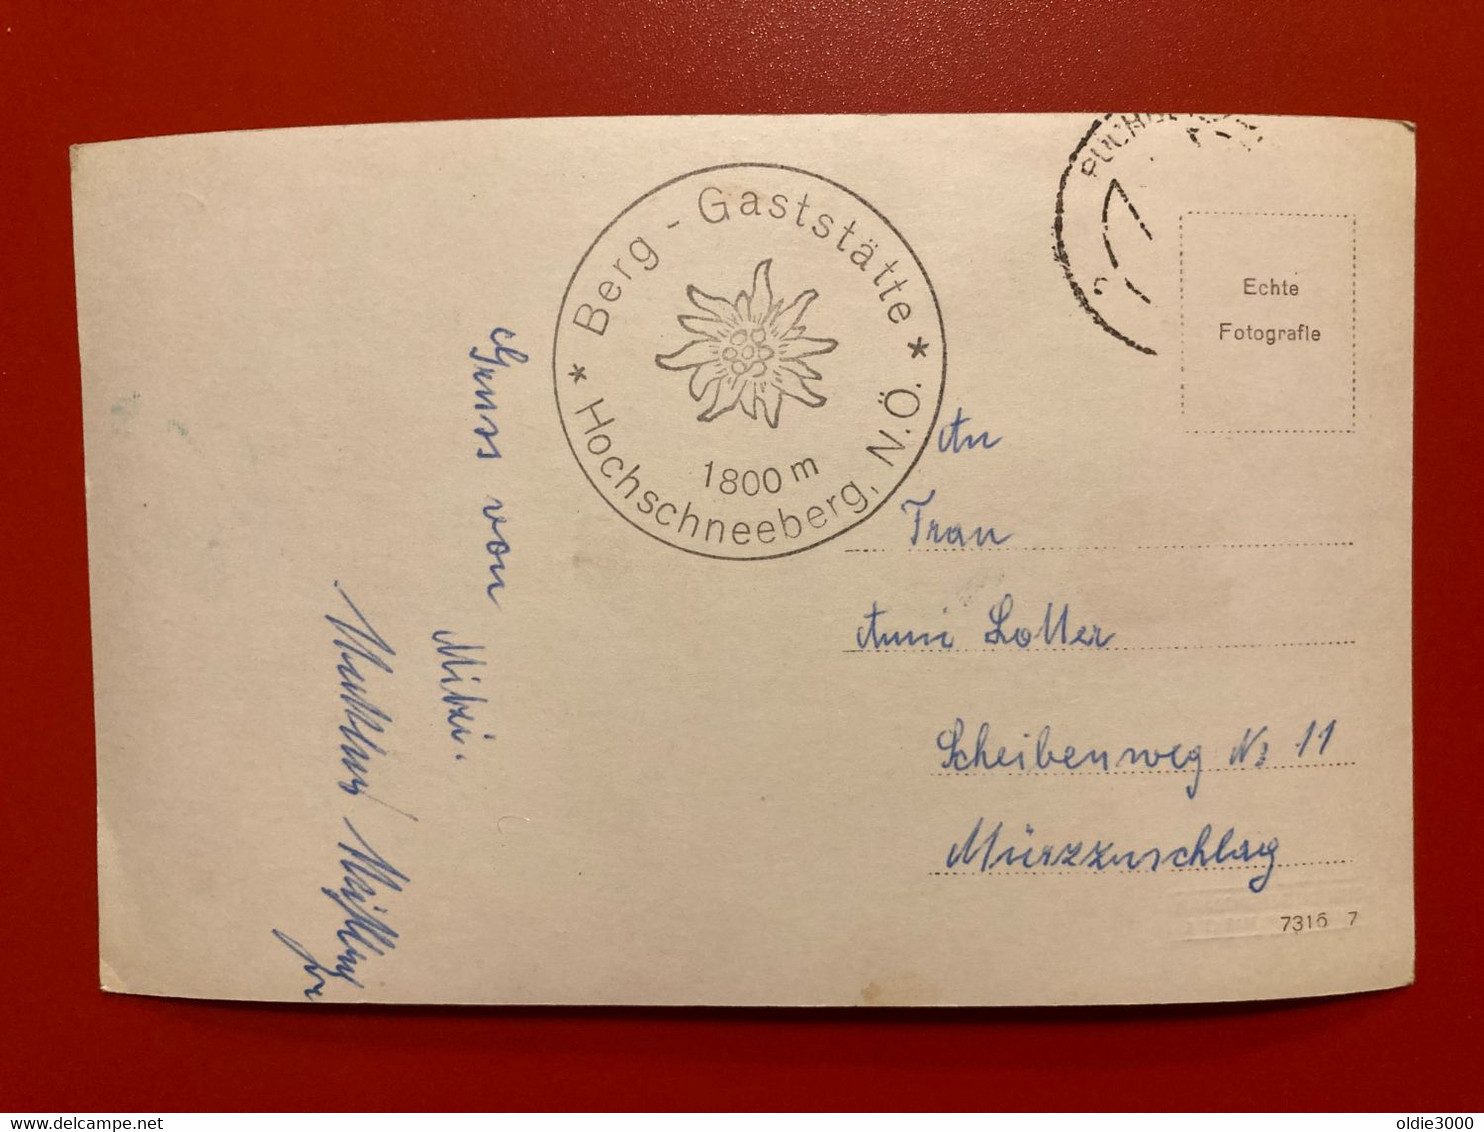 * Berg - Gaststätte *
1800 m
Hochschneeberg, N.Ö.
Echte
Fotografie
Gruss von
Mitzi.
An
Frau
Anni Lotter
Scheibenweg Nr 11
Mürzzuschlag
7316 7
delcampe.net
oldie3000